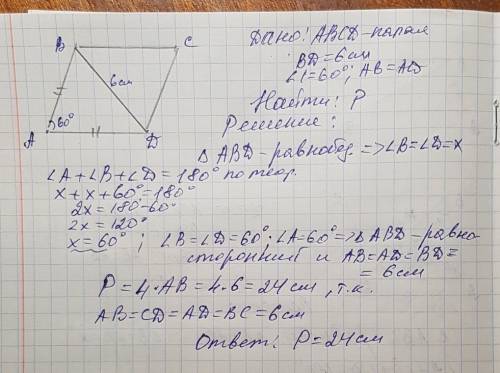 Дано: ABCD-парал
BD=6см
∠1=60°; AB=AD
Найти: P
Решение:
B
C
6см
A
60°
D
△ ABD-равнобед => ∠B=∠D=x
∠A+∠B+∠D=180° по теор.
x+x+60°=180°
2x=180°-60°
2x=120°
x=60° ; ∠B=∠D=60°; ∠A=60° => △ ABD-равно-
сторонний и AB=AD=BD=
=6см
P=4·AB=4·6=24см, т.к.
AB=CD=AD=BC=6см
Ответ: P=24см